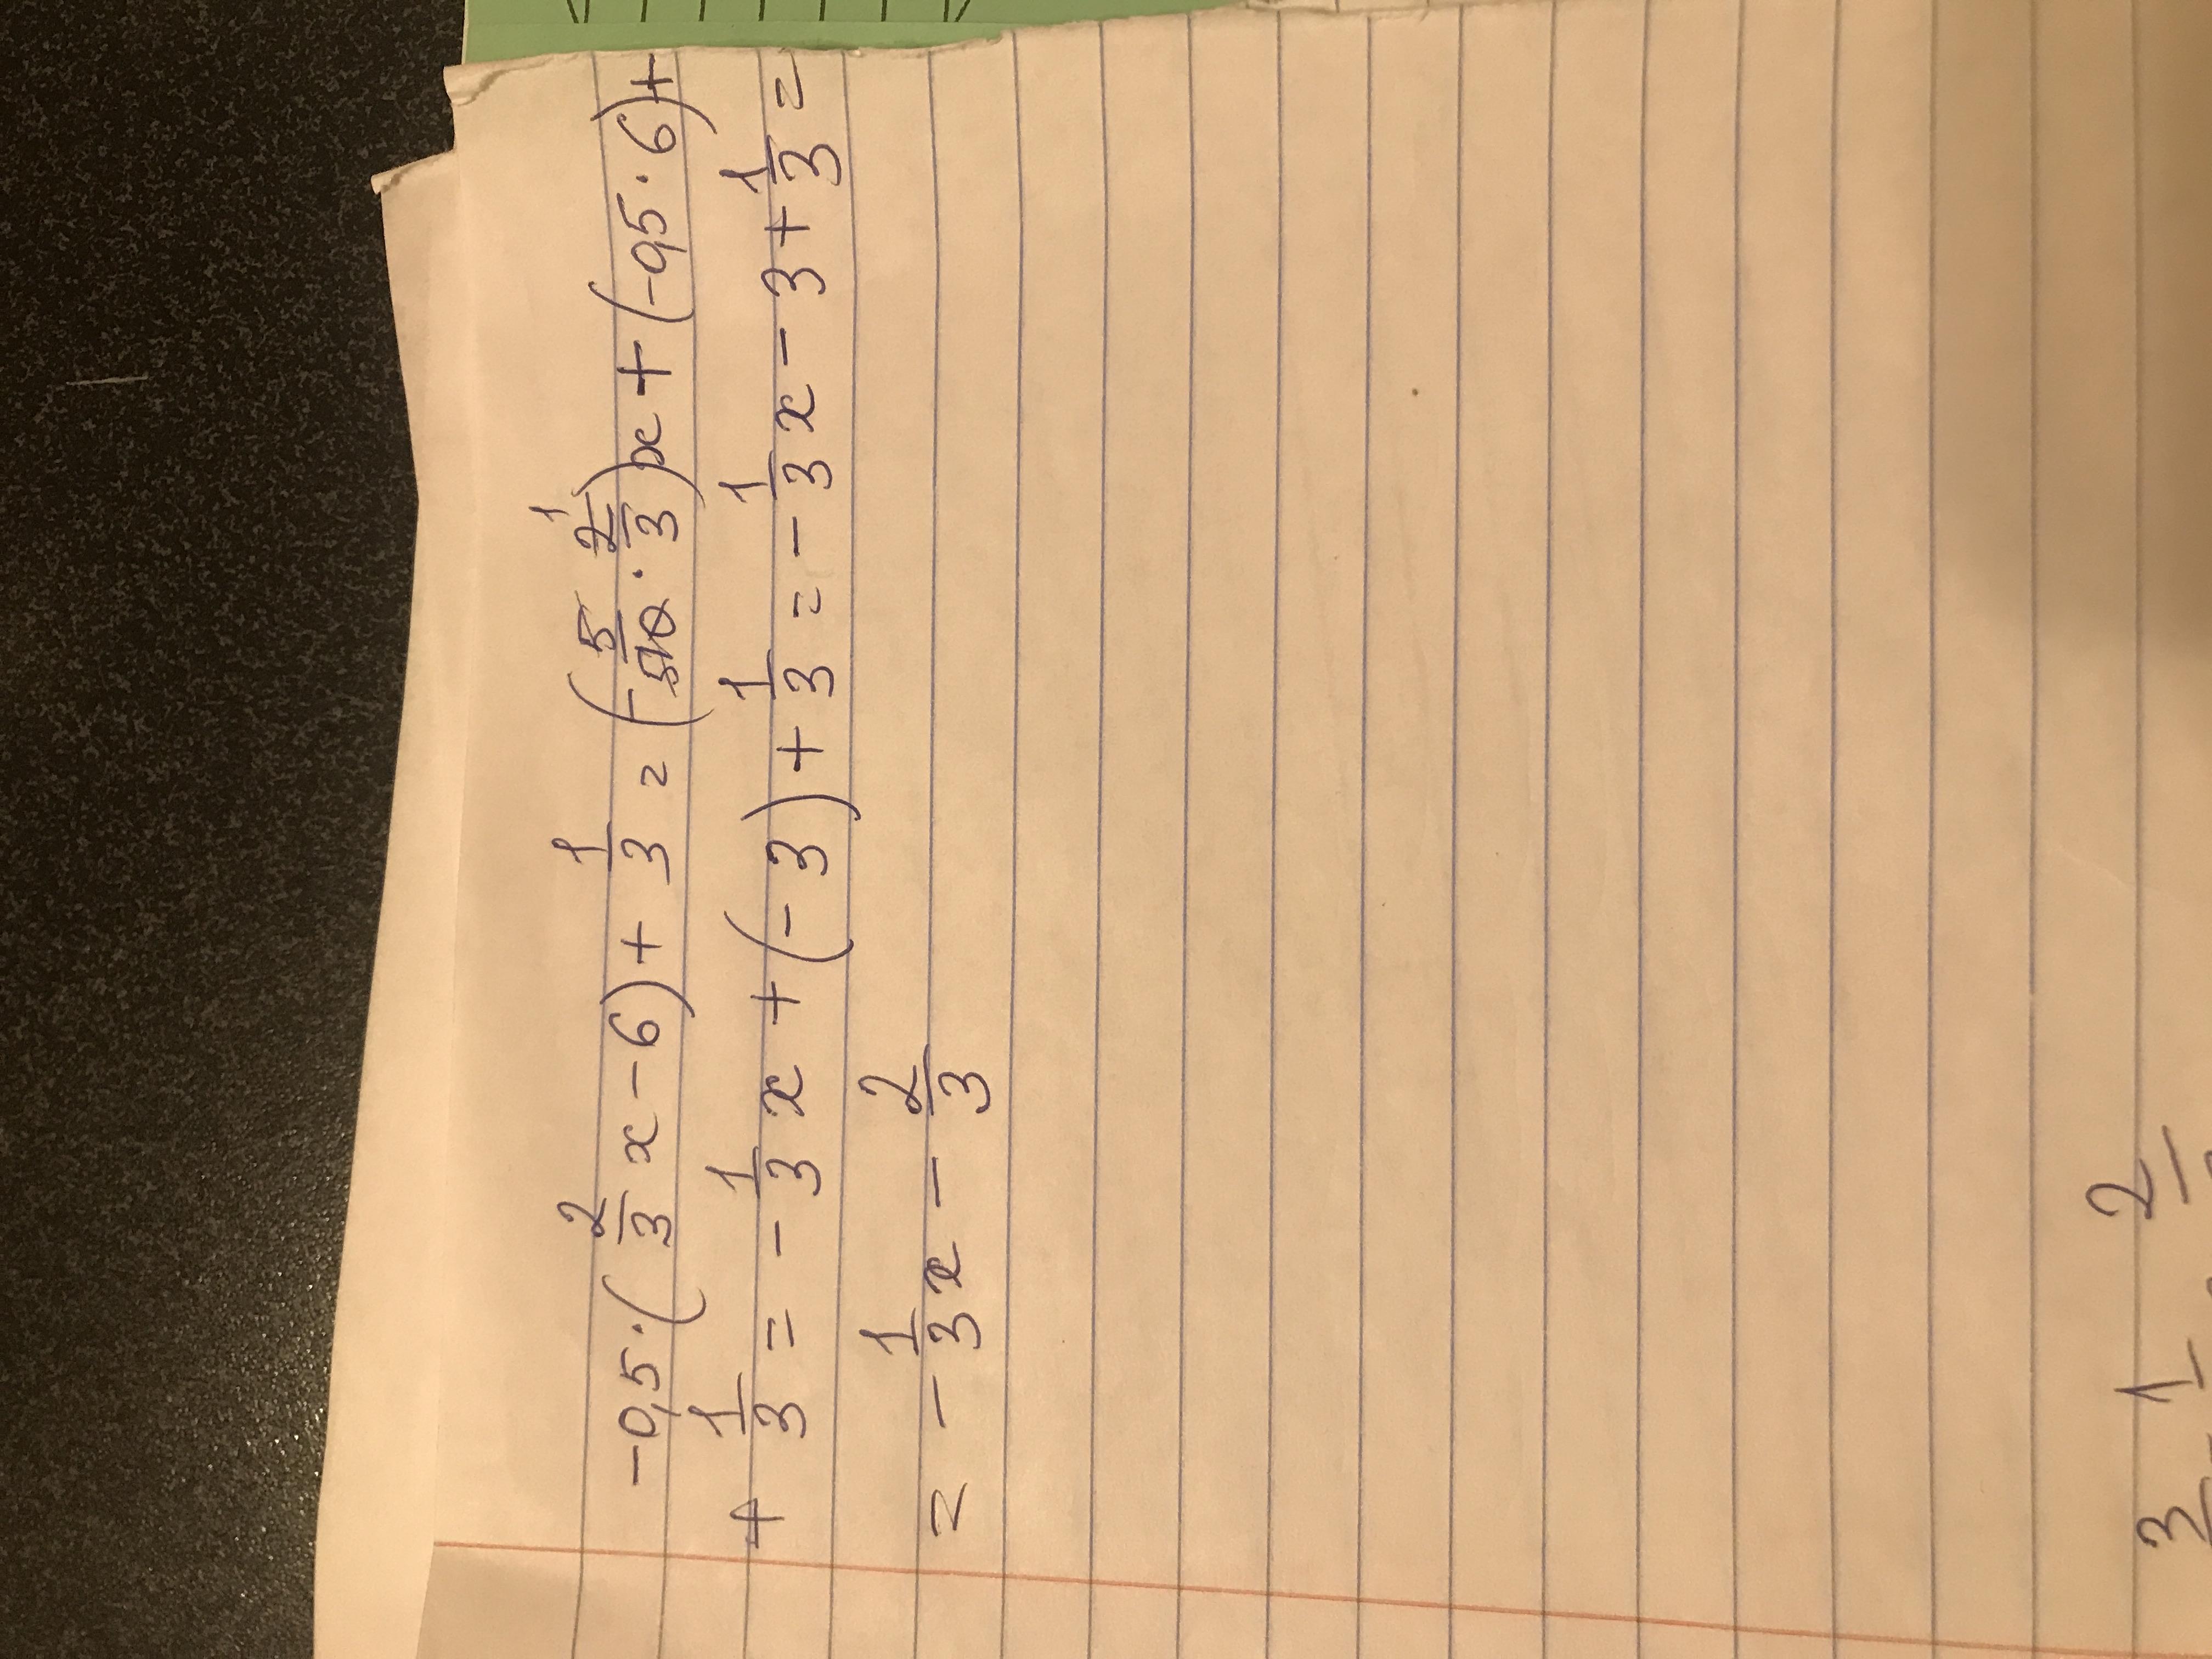 -0,5·(2/3 x - 6) + 1/3 = (-5/10 · 2/3)x + (-0,5·6) +
+ 1/3 = - 1/3 x + (-3) + 1/3 = - 1/3 x - 3 + 1/3 =
= - 1/3 x - 2/3